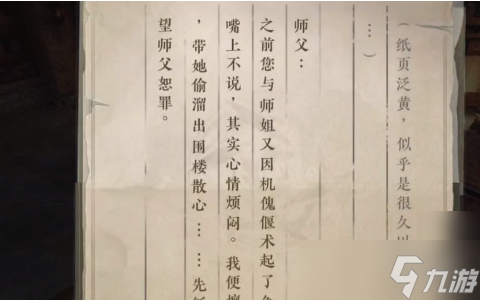 （纸页泛黄，似乎是很久以
…）
师父：
之前您与师姐又因机傀偃术起了
嘴上不说，其实心情烦闷。我便
，带她偷溜出围楼散心……先
望师父恕罪。
九游